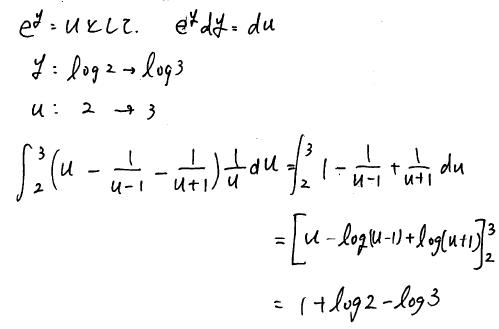 e^y = u として. e^y dy = du
y : log2 → log3
u : 2 → 3
∫_2^3 (u - 1/(u-1) - 1/(u+1)) 1/u du = ∫_2^3 1 - 1/(u-1) + 1/(u+1) du
= [u - log(u-1) + log(u+1)]_2^3
= 1 + log2 - log3